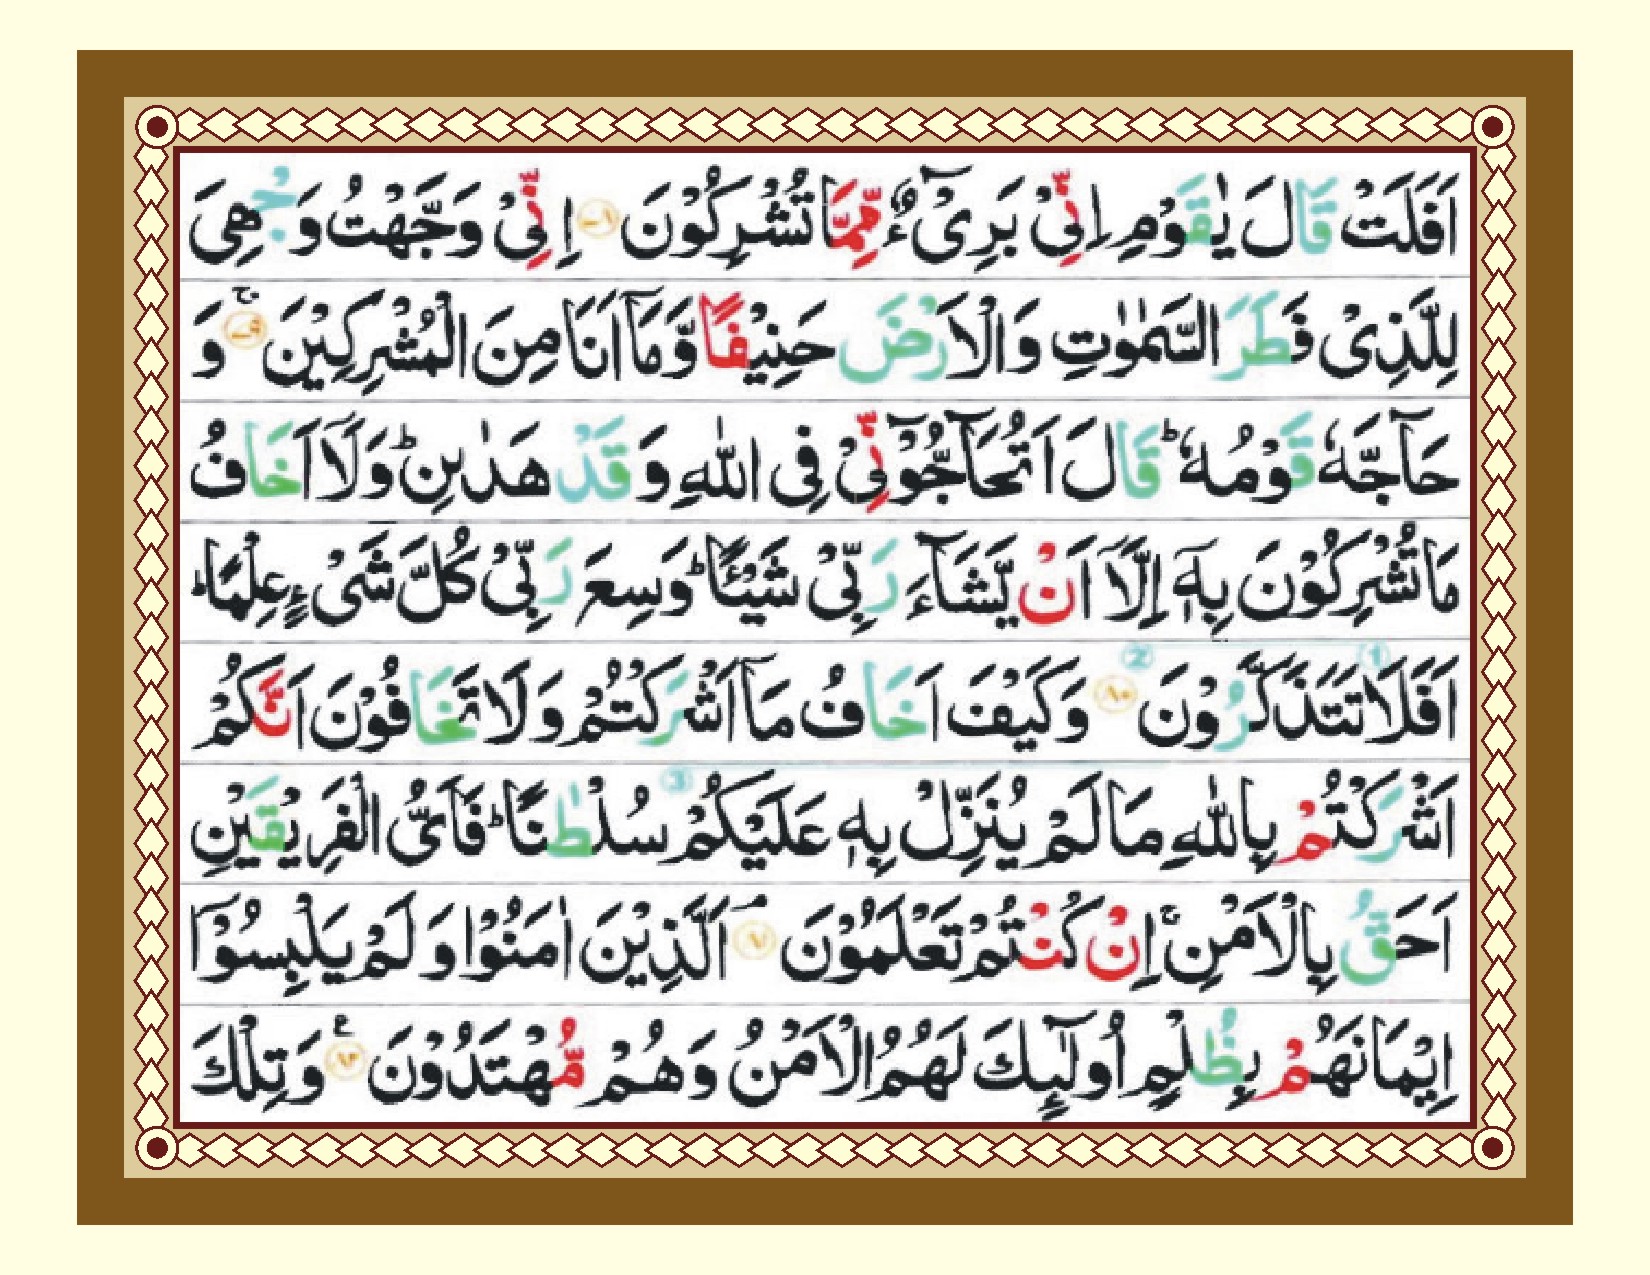 اَفَلَتْ قَالَ يٰقَوْمِ اِنِّىْ بَرِىْٓءٌ مِّمَّا تُشْرِكُوْنَ ﴿۷۸﴾ اِنِّىْ وَجَّهْتُ وَجْهِىَ
لِلَّذِىْ فَطَرَ السَّمٰوٰتِ وَالْاَرْضَ حَنِيْفًا وَّمَآ اَنَا مِنَ الْمُشْرِكِيْنَ ۚ ﴿۷۹﴾ وَ
حَآجَّهٗ قَوْمُهٗ ؕ قَالَ اَتُحَآجُّوْٓنِّىْ فِى اللّٰهِ وَقَدْ هَدٰىنِ ؕ وَلَآ اَخَافُ
مَا تُشْرِكُوْنَ بِهٖٓ اِلَّآ اَنْ يَّشَآءَ رَبِّىْ شَيْـًٔا ؕ وَسِعَ رَبِّىْ كُلَّ شَىْءٍ عِلْمًا ؕ
اَفَلَا تَتَذَكَّرُوْنَ ﴿۸۰﴾ وَكَيْفَ اَخَافُ مَآ اَشْرَكْتُمْ وَلَا تَخَافُوْنَ اَنَّكُمْ
اَشْرَكْتُمْ بِاللّٰهِ مَا لَمْ يُنَزِّلْ بِهٖ عَلَيْكُمْ سُلْطٰنًا ؕ فَاَىُّ الْفَرِيْقَيْنِ
اَحَقُّ بِالْاَمْنِ ۚ اِنْ كُنْتُمْ تَعْلَمُوْنَ ۘ ﴿۸۱﴾ اَلَّذِيْنَ اٰمَنُوْا وَلَمْ يَلْبِسُوْٓا
اِيْمَانَهُمْ بِظُلْمٍ اُولٰٓئِكَ لَهُمُ الْاَمْنُ وَهُمْ مُّهْتَدُوْنَ ﴿۸۲﴾ ع وَتِلْكَ